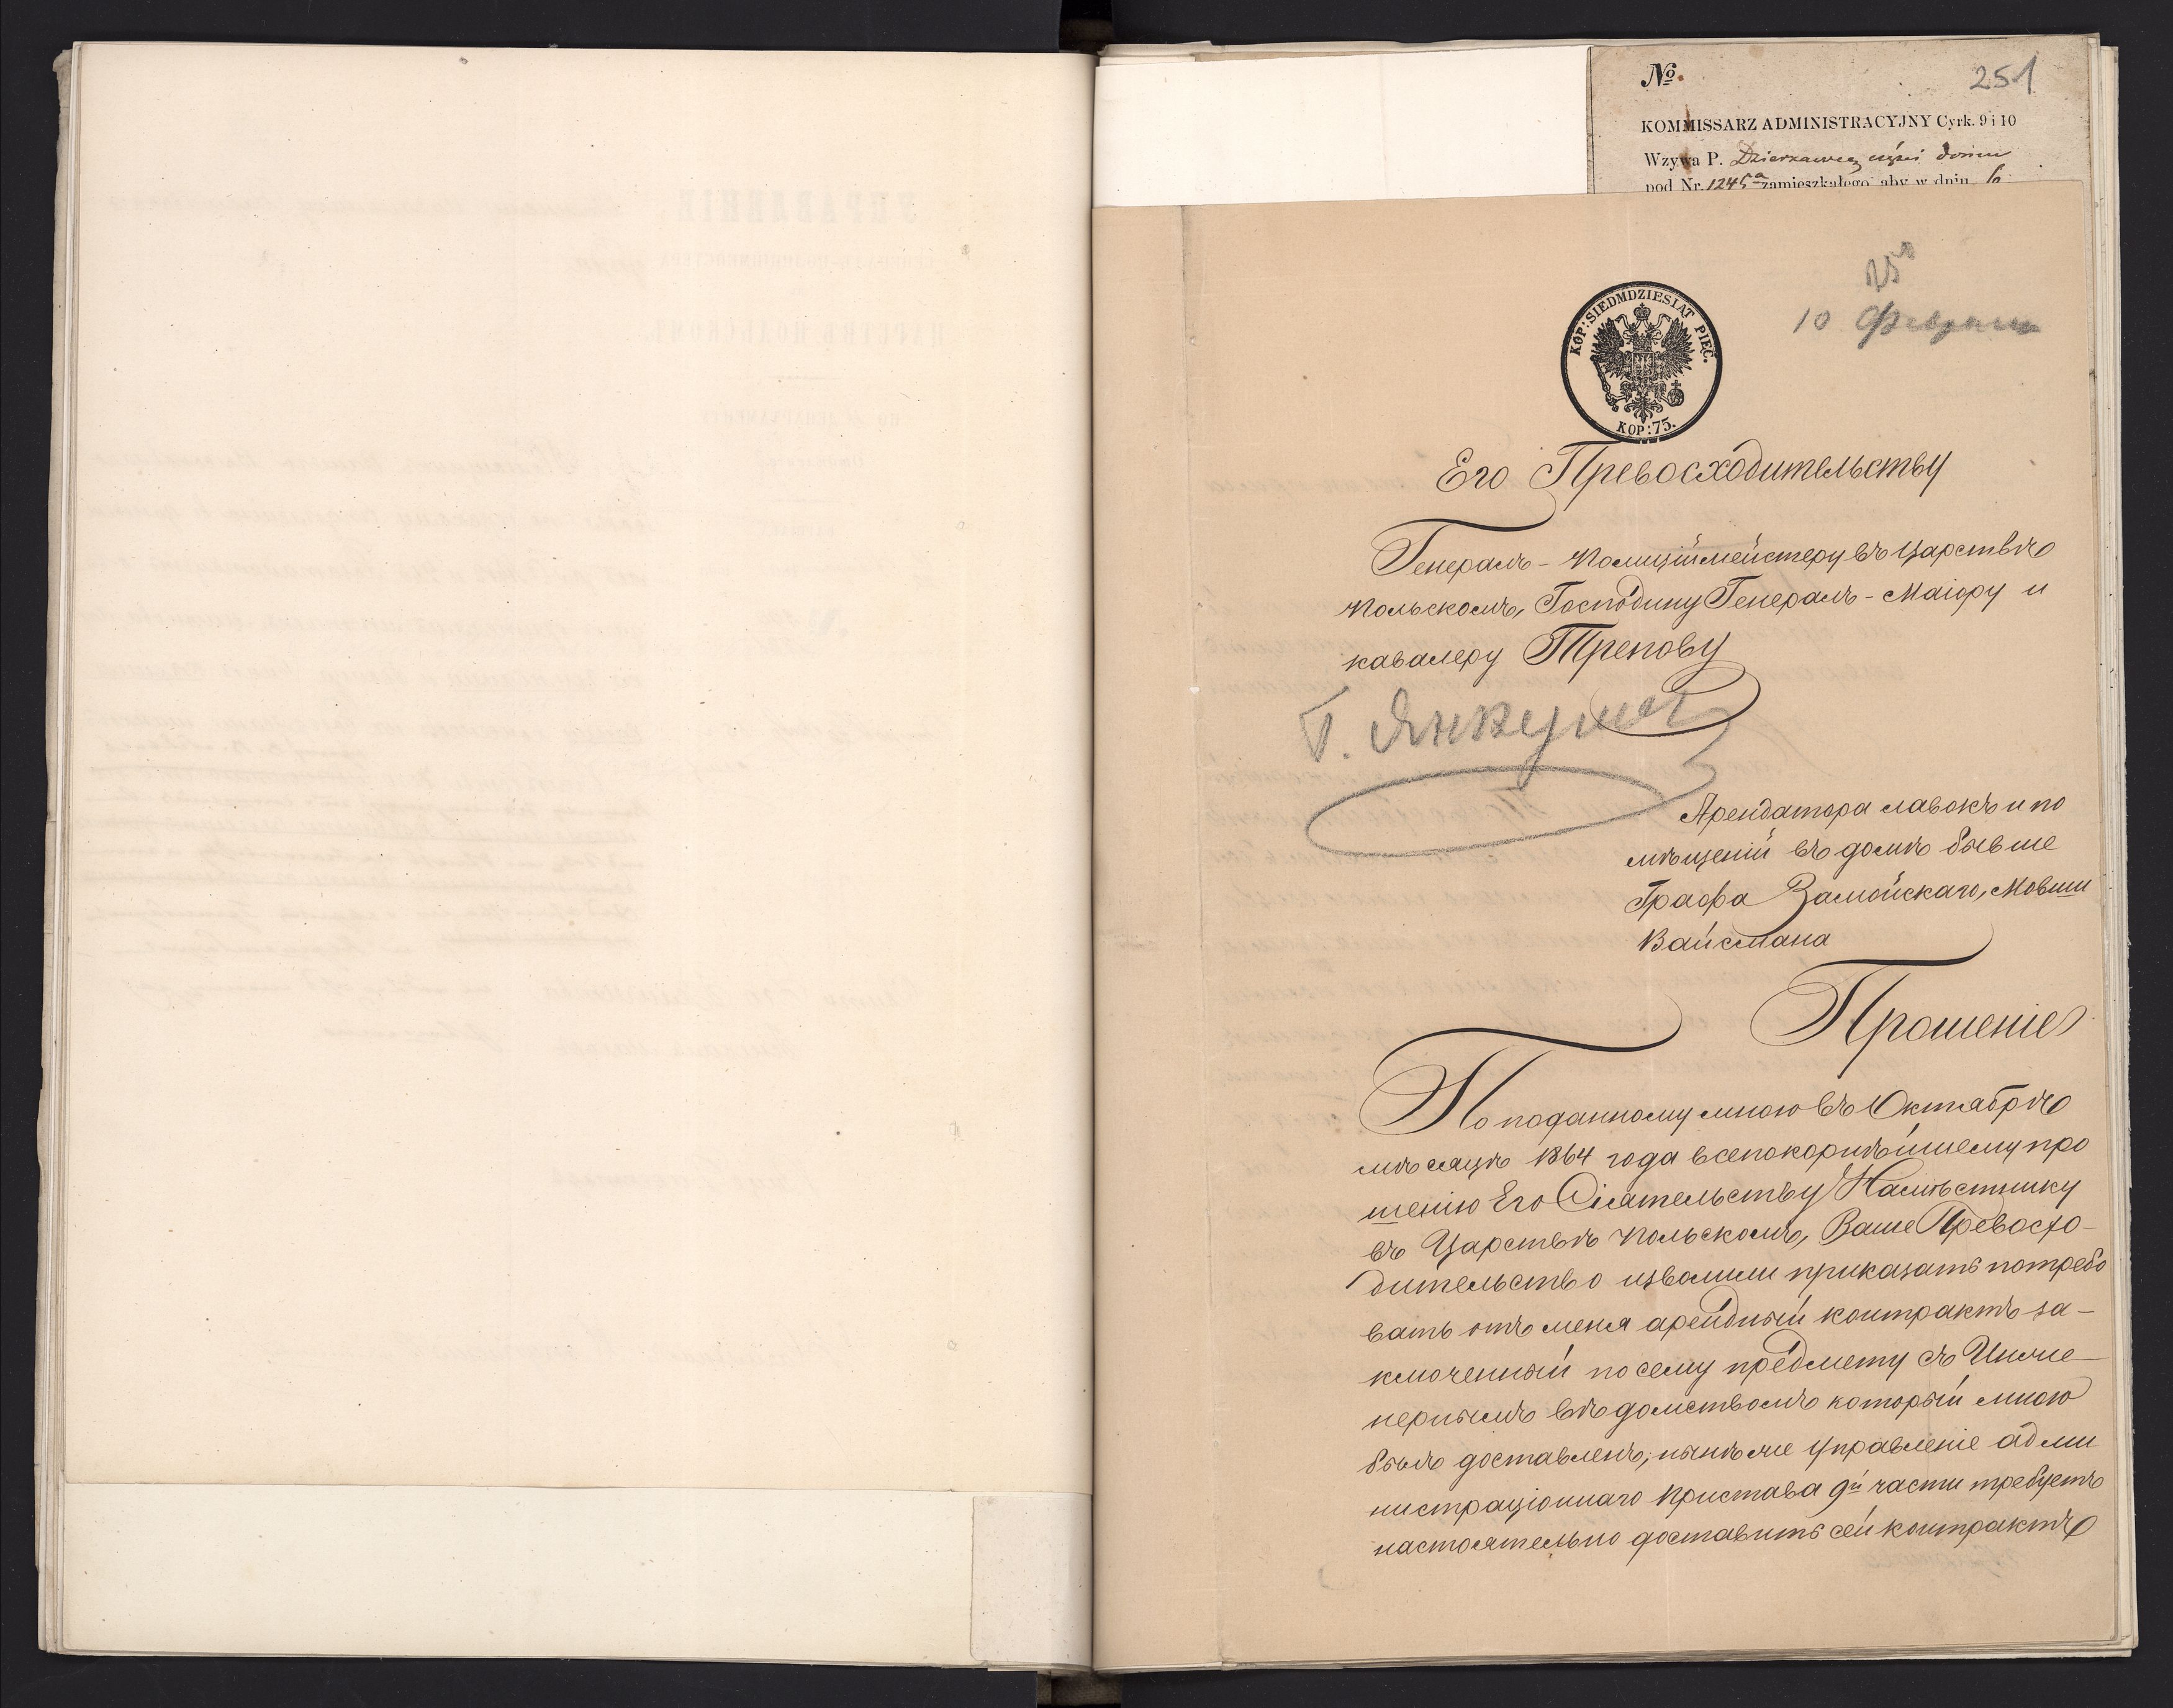 №.
251
KOMMISSARZ ADMINISTRACYJNY Cyrk. 9 i 10
Wzywa P. Dzierzawcę części domu
pod Nr. 1245a zamieszkałego aby w dniu 6
10 Февраля
KOP: SIEDMDZIESIĄT PIĘĆ.
KOP: 75.
Его Превосходительству
Генералъ-Полиціймейстеру въ Царствѣ
Польскомъ, Господину Генералъ-Маіору и
кавалеру Трепову
Г.
Арендатора лавокъ и по
мѣщеній въ домѣ бывше
Графа Замойскаго, Мовши
Вайсмана
Прошеніе
По поданному мною въ Октябрѣ
мѣсяцѣ 1864 года всепокорнѣйшему про
шенію Его Сіятельству Намѣстнику
въ Царствѣ Польскомъ, Ваше Превосхо-
дительство изволили приказать потребо
вать отъ меня арендный контрактъ за-
ключенный по сему предмету съ Инже-
нернымъ вѣдомствомъ который мною
былъ доставленъ; нынѣ же Управленіе адми
нистраціоннаго Пристава 9й части требуетъ
настоятельно доставить сей контрактъ